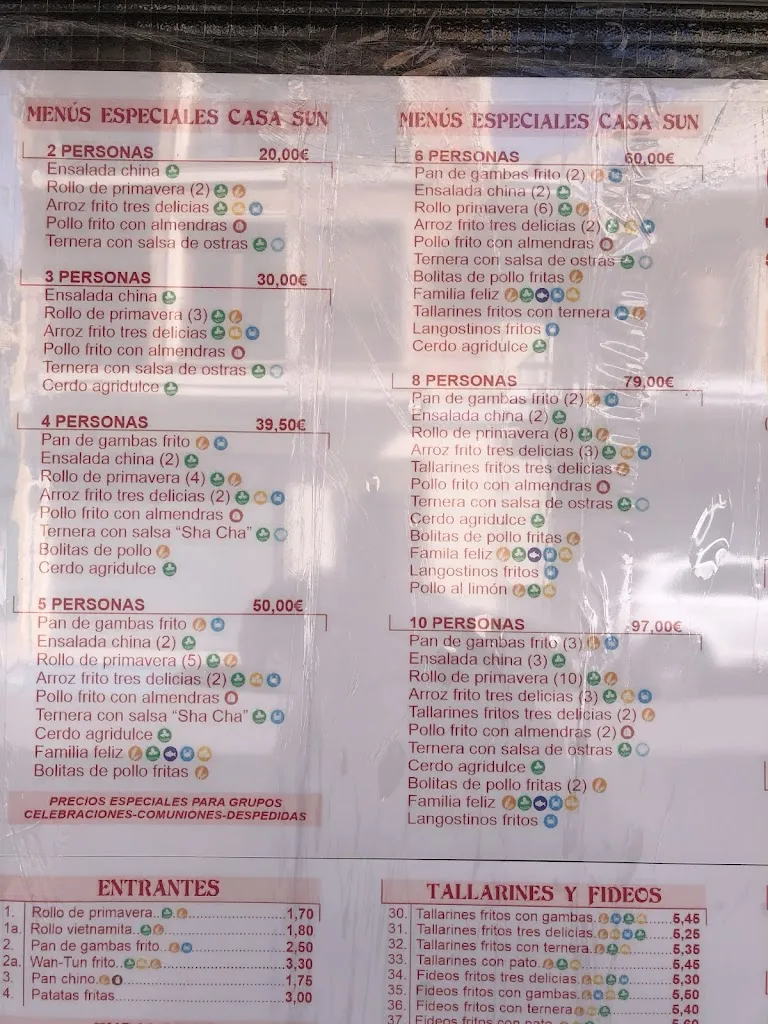 MENÚS ESPECIALES CASA SUN
2 PERSONAS 20,00€
Ensalada china
Rollo de primavera (2)
Arroz frito tres delicias
Pollo frito con almendras
Ternera con salsa de ostras
3 PERSONAS 30,00€
Ensalada china
Rollo de primavera (3)
Arroz frito tres delicias
Pollo frito con almendras
Ternera con salsa de ostras
Cerdo agridulce
4 PERSONAS 39,50€
Pan de gambas frito
Ensalada china (2)
Rollo de primavera (4)
Arroz frito tres delicias (2)
Pollo frito con almendras
Ternera con salsa “Sha Cha”
Bolitas de pollo
Cerdo agridulce
5 PERSONAS 50,00€
Pan de gambas frito
Ensalada china (2)
Rollo de primavera (5)
Arroz frito tres delicias (2)
Pollo frito con almendras
Ternera con salsa “Sha Cha”
Cerdo agridulce
Familia feliz
Bolitas de pollo fritas
PRECIOS ESPECIALES PARA GRUPOS
CELEBRACIONES-COMUNIONES-DESPEDIDAS
MENÚS ESPECIALES CASA SUN
6 PERSONAS 60,00€
Pan de gambas frito (2)
Ensalada china (2)
Rollo primavera (6)
Arroz frito tres delicias (2)
Pollo frito con almendras
Ternera con salsa de ostras
Bolitas de pollo fritas
Familia feliz
Tallarines fritos con ternera
Langostinos fritos
Cerdo agridulce
8 PERSONAS 79,00€
Pan de gambas frito (2)
Ensalada china (2)
Rollo de primavera (8)
Arroz frito tres delicias (3)
Tallarines fritos tres delicias
Pollo frito con almendras
Ternera con salsa de ostras
Cerdo agridulce
Bolitas de pollo fritas
Famila feliz
Langostinos fritos
Pollo al limón
10 PERSONAS 97,00€
Pan de gambas frito (3)
Ensalada china (3)
Rollo de primavera (10)
Arroz frito tres delicias (3)
Tallarines fritos tres delicias (2)
Pollo frito con almendras (2)
Ternera con salsa de ostras
Cerdo agridulce
Bolitas de pollo fritas (2)
Familia feliz
Langostinos fritos
ENTRANTES
1. Rollo de primavera 1,70
1a. Rollo vietnamita 1,80
2. Pan de gambas frito 2,50
2a. Wan-Tun frito 3,30
3. Pan chino 1,75
4. Patatas fritas 3,00
TALLARINES Y FIDEOS
30. Tallarines fritos con gambas 5,45
31. Tallarines fritos tres delicias 5,25
32. Tallarines fritos con ternera 5,35
33. Tallarines con pato 5,45
34. Fideos fritos tres delicias 5,30
35. Fideos fritos con gambas 5,50
36. Fideos fritos con ternera 5,40
37. Fideos fritos con pato 5,60